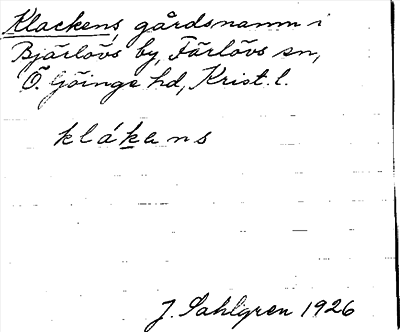 Klackens, gårdsnamn i
Bjärlövs by, Färlövs sn,
Ö. Göinge hd, Krist. l.
klákans
J. Sahlgren 1926